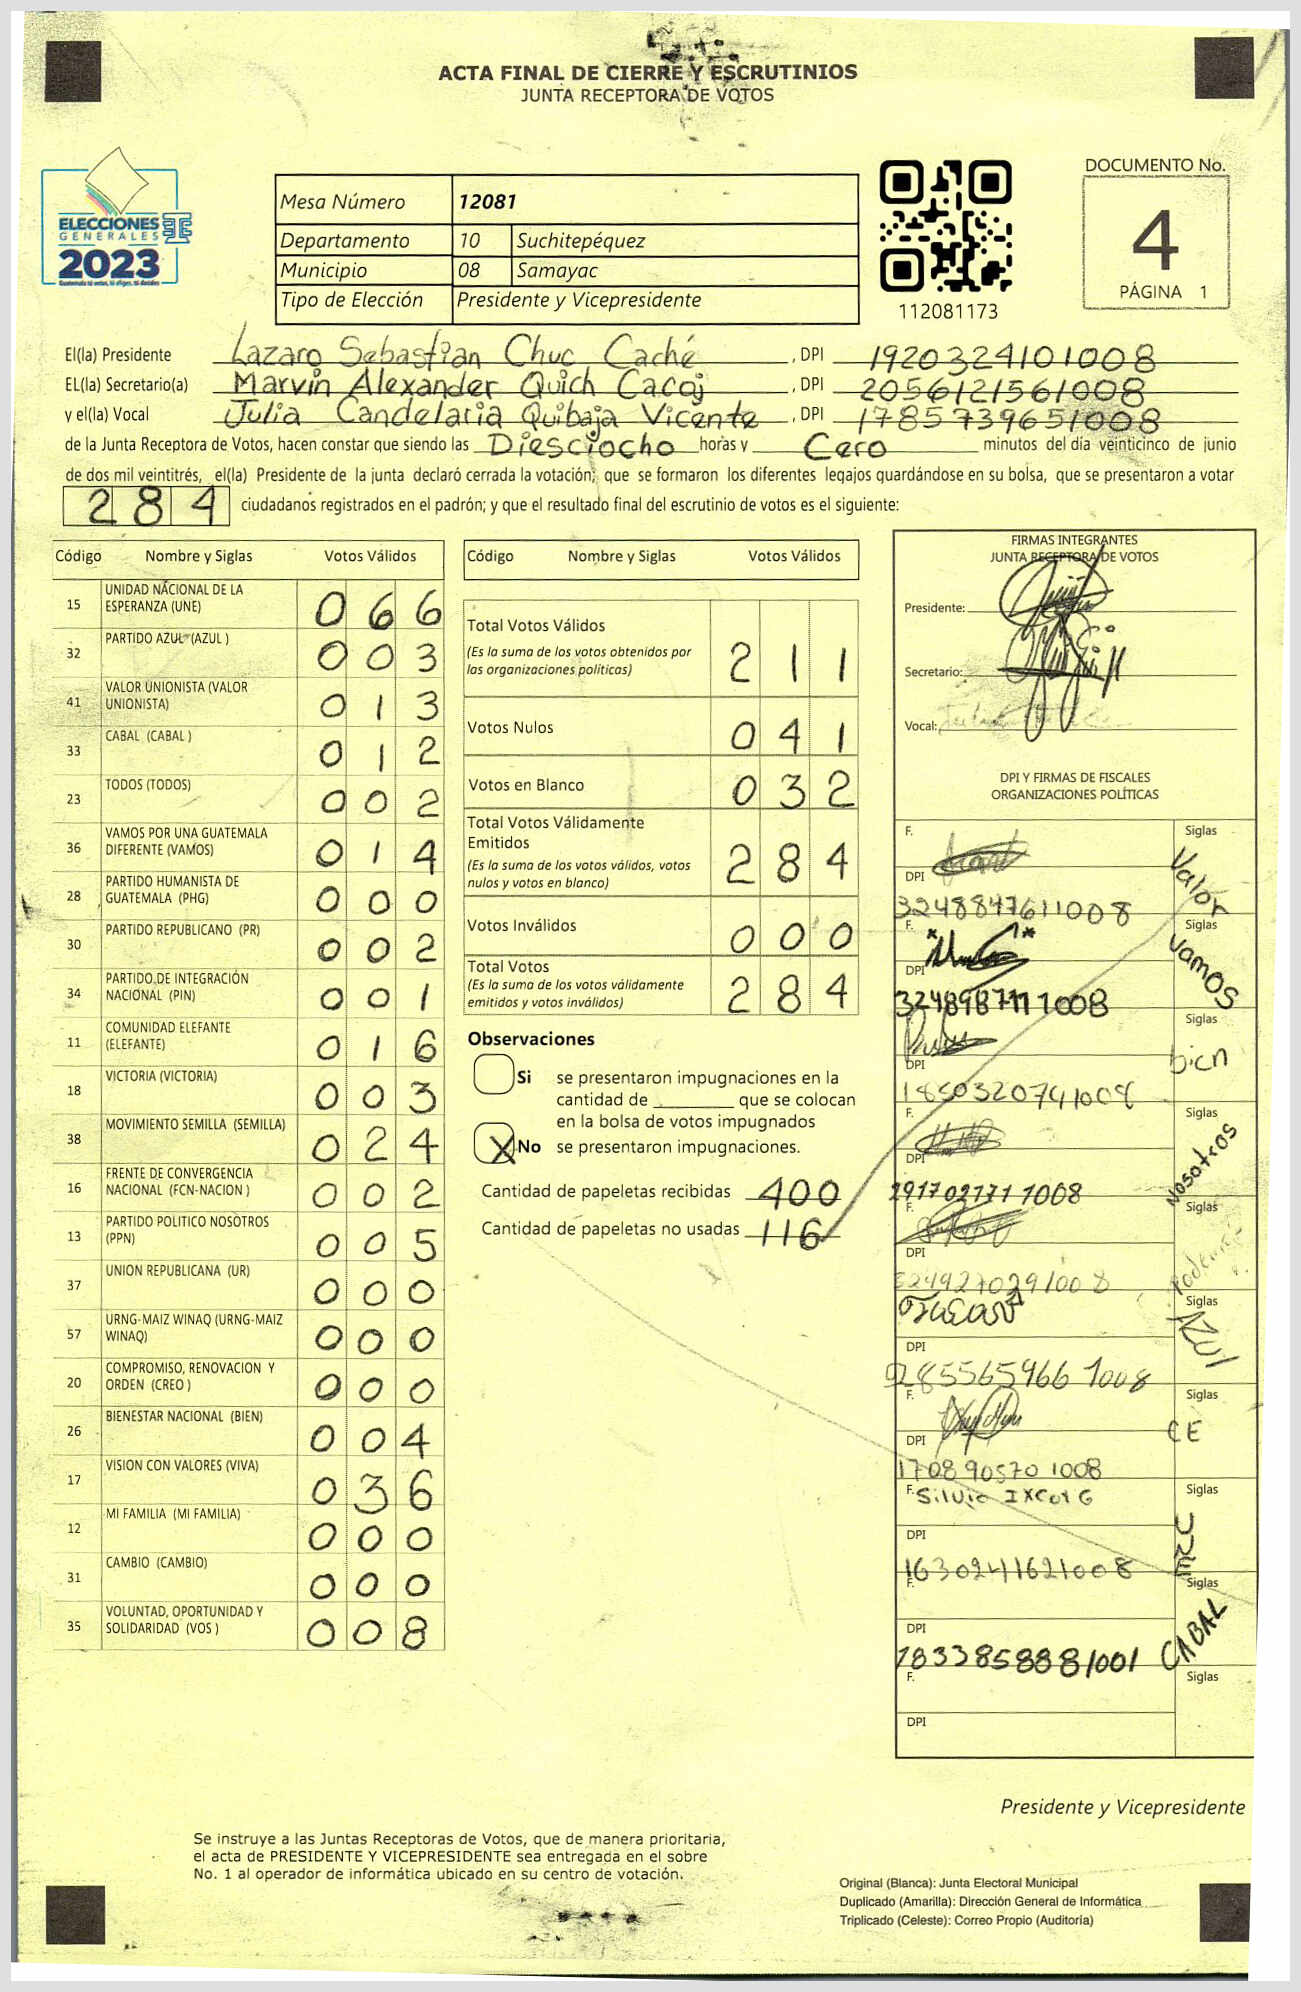 ACTA FINAL DE CIERRE Y ESCRUTINIOS
JUNTA RECEPTORA DE VOTOS
ELECCIONES
GENERALES
2023
Guatemala tú votas, tú eliges, tú decides
Mesa Número 12081
Departamento 10 Suchitepéquez
Municipio 08 Samayac
Tipo de Elección Presidente y Vicepresidente
112081173
DOCUMENTO No.
4
PÁGINA 1
El(la) Presidente Lazaro Sebastian Chuc Caché , DPI 1920324101008
EL(la) Secretario(a) Marvin Alexander Quich Cacoj , DPI 2056121561008
y el(la) Vocal Julia Candelaria Quibaja Vicente , DPI 1785739651008
de la Junta Receptora de Votos, hacen constar que siendo las Diesciocho horas y Cero minutos del día veinticinco de junio
de dos mil veintitrés, el(la) Presidente de la junta declaró cerrada la votación; que se formaron los diferentes legajos guardándose en su bolsa, que se presentaron a votar
284 ciudadanos registrados en el padrón; y que el resultado final del escrutinio de votos es el siguiente:
Código Nombre y Siglas Votos Válidos
15 UNIDAD NACIONAL DE LA ESPERANZA (UNE) 066
32 PARTIDO AZUL (AZUL ) 003
41 VALOR UNIONISTA (VALOR UNIONISTA) 013
33 CABAL (CABAL ) 012
23 TODOS (TODOS) 002
36 VAMOS POR UNA GUATEMALA DIFERENTE (VAMOS) 014
28 PARTIDO HUMANISTA DE GUATEMALA (PHG) 000
30 PARTIDO REPUBLICANO (PR) 002
34 PARTIDO DE INTEGRACIÓN NACIONAL (PIN) 001
11 COMUNIDAD ELEFANTE (ELEFANTE) 016
18 VICTORIA (VICTORIA) 003
38 MOVIMIENTO SEMILLA (SEMILLA) 024
16 FRENTE DE CONVERGENCIA NACIONAL (FCN-NACION ) 002
13 PARTIDO POLITICO NOSOTROS (PPN) 005
37 UNION REPUBLICANA (UR) 000
57 URNG-MAIZ WINAQ (URNG-MAIZ WINAQ) 000
20 COMPROMISO, RENOVACION Y ORDEN (CREO ) 000
26 BIENESTAR NACIONAL (BIEN) 004
17 VISION CON VALORES (VIVA) 036
12 MI FAMILIA (MI FAMILIA) 000
31 CAMBIO (CAMBIO) 000
35 VOLUNTAD, OPORTUNIDAD Y SOLIDARIDAD (VOS ) 008
Código Nombre y Siglas Votos Válidos
Total Votos Válidos 211
(Es la suma de los votos obtenidos por
las organizaciones políticas)
Votos Nulos 041
Votos en Blanco 032
Total Votos Válidamente
Emitidos 284
(Es la suma de los votos válidos, votos
nulos y votos en blanco)
Votos Inválidos 000
Total Votos 284
(Es la suma de los votos válidamente
emitidos y votos inválidos)
Observaciones
Si se presentaron impugnaciones en la
cantidad de que se colocan
en la bolsa de votos impugnados
X No se presentaron impugnaciones.
Cantidad de papeletas recibidas 400
Cantidad de papeletas no usadas 116
FIRMAS INTEGRANTES
JUNTA RECEPTORA DE VOTOS
Presidente:
Secretario:
Vocal:
DPI Y FIRMAS DE FISCALES
ORGANIZACIONES POLÍTICAS
F. Siglas Valor
DPI 3248847611008
F. Siglas Vamos
DPI 3248987111008
Siglas bien
DPI 1850320741008
F. Siglas Nosotros
DPI 2917027711008
F. Siglas
DPI
Siglas AZUL
DPI 9285565966 1008
F. Siglas CE
DPI 1708905701008
F. Silvia Ixcoy G Siglas UNE
DPI 1630241621008
F. Siglas CABAL
DPI 1833858881001
F. Siglas
DPI
Presidente y Vicepresidente
Se instruye a las Juntas Receptoras de Votos, que de manera prioritaria,
el acta de PRESIDENTE Y VICEPRESIDENTE sea entregada en el sobre
No. 1 al operador de informática ubicado en su centro de votación.
Original (Blanca): Junta Electoral Municipal
Duplicado (Amarilla): Dirección General de Informática
Triplicado (Celeste): Correo Propio (Auditoría)